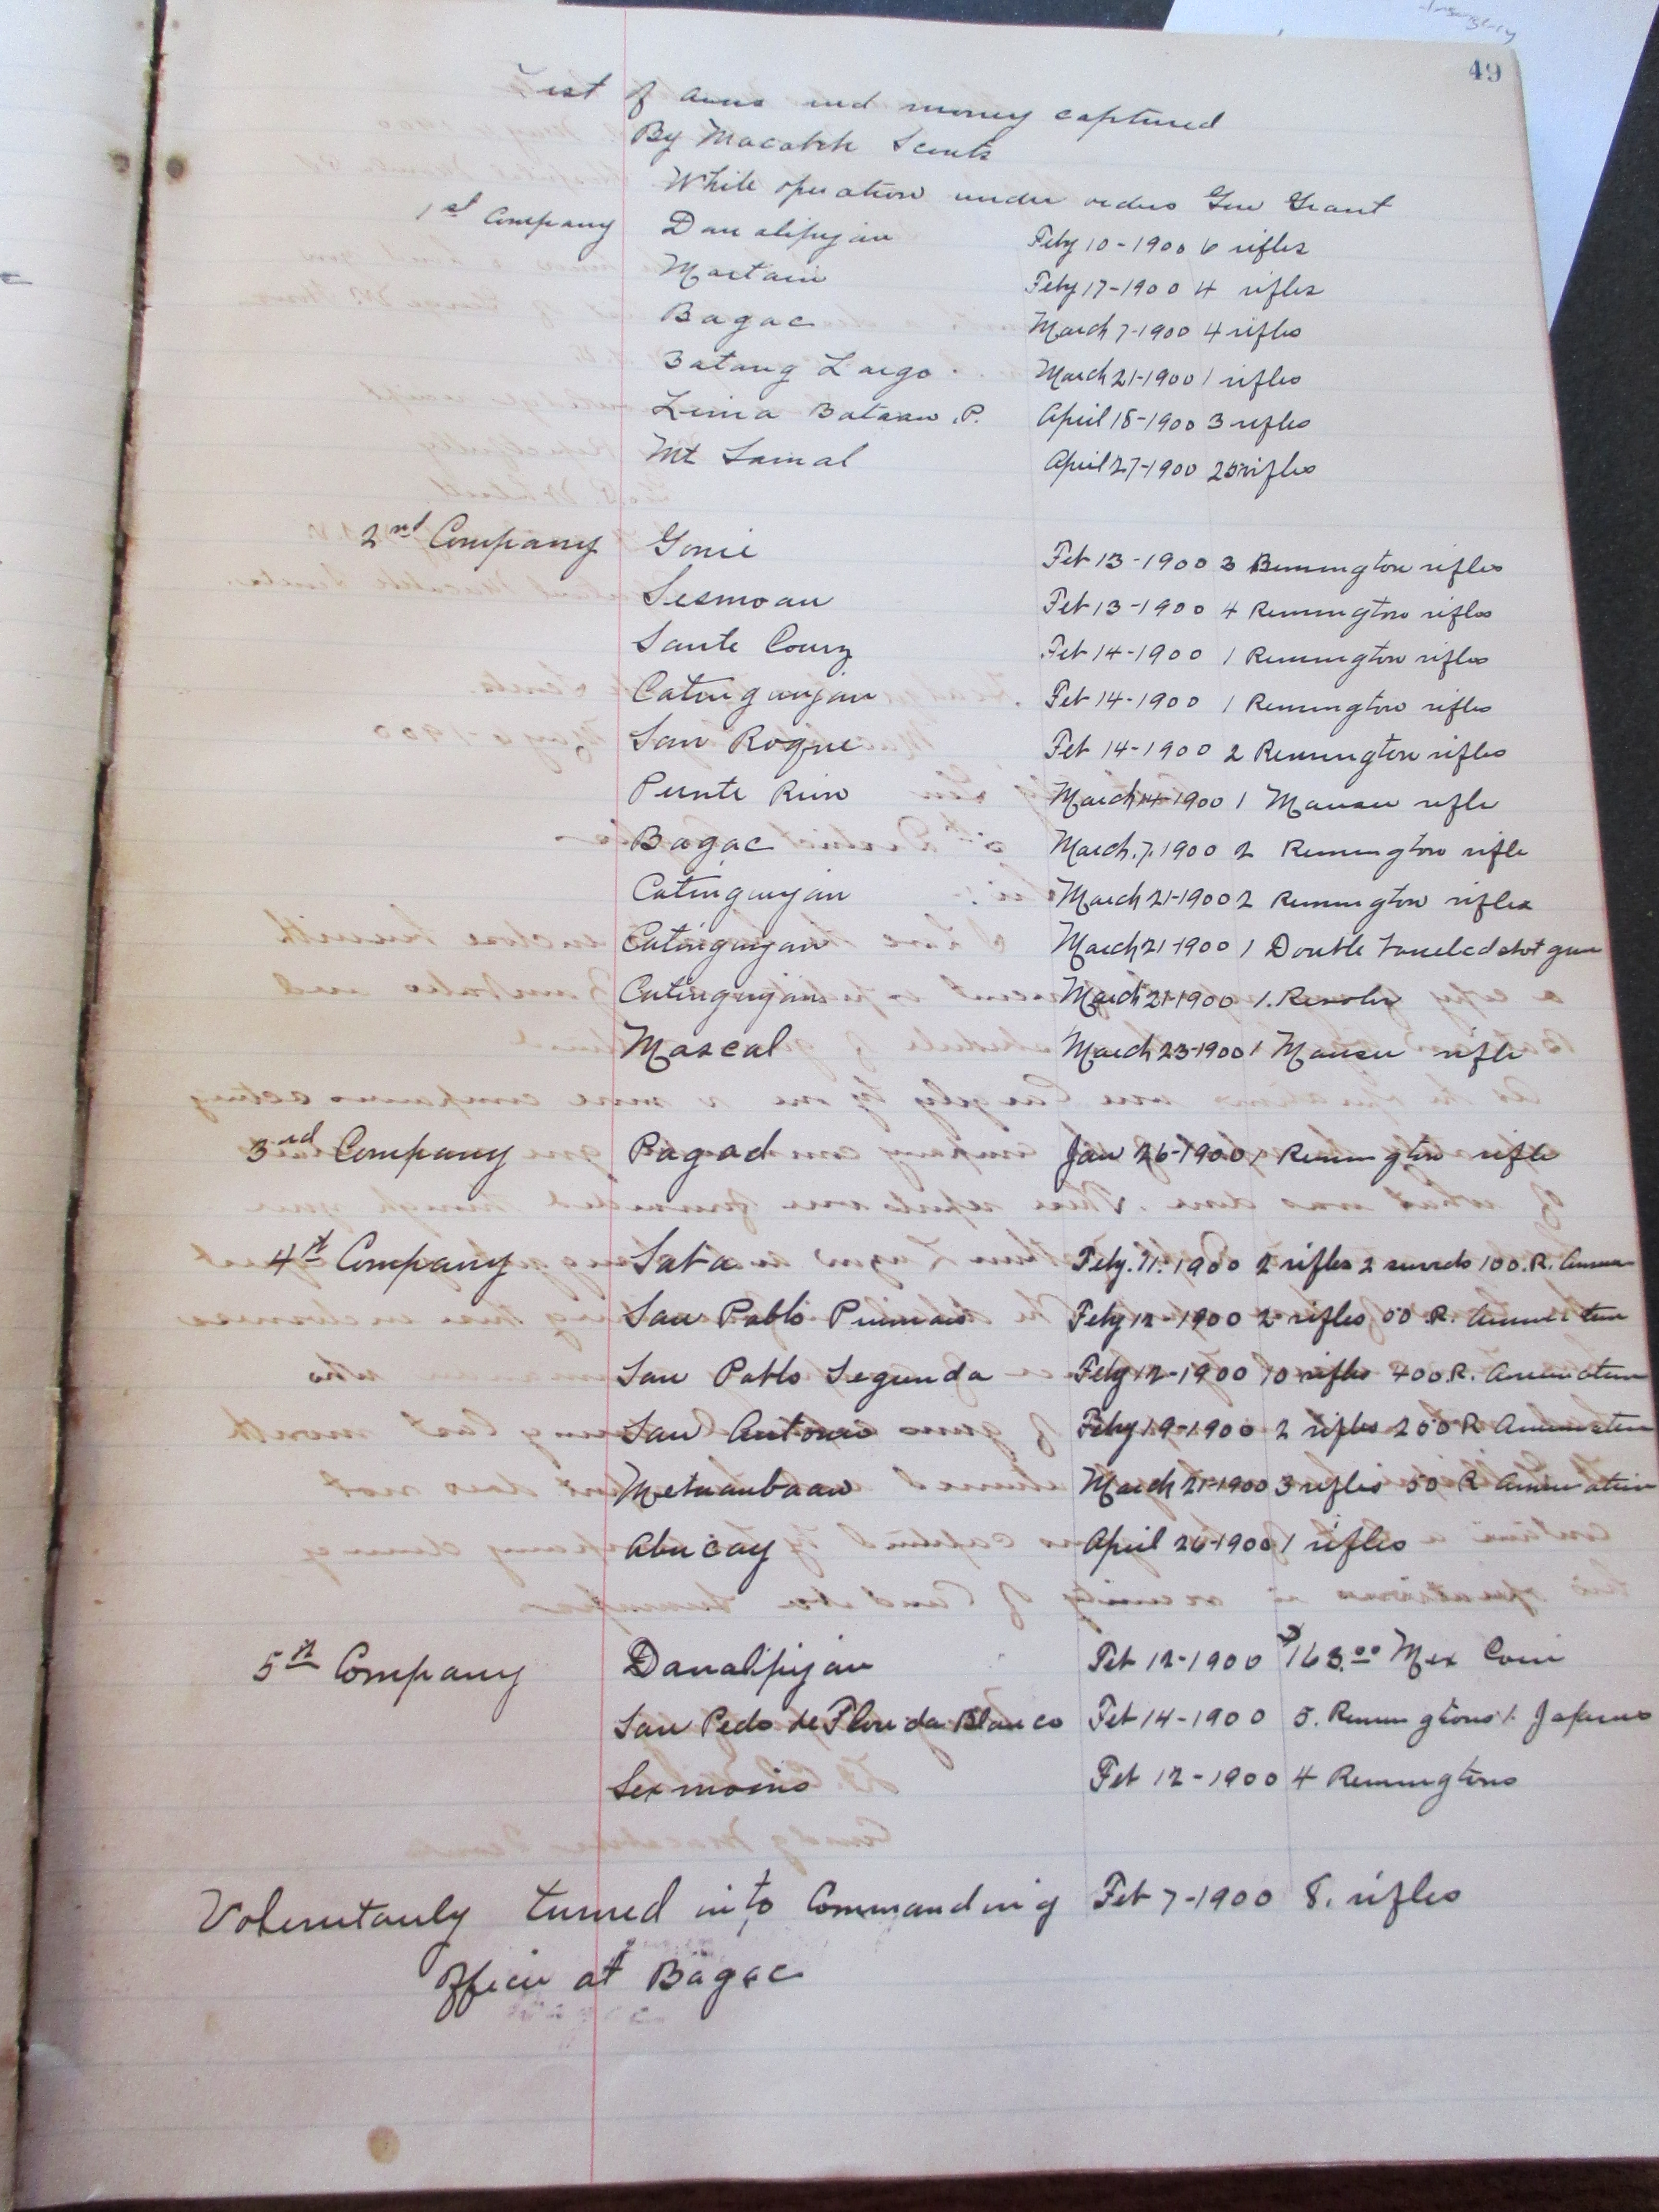 49
List of arms and money captured
By Macabebe Scouts
While operation under orders Gen Grant
1st Company Danalipijan Feby 10-1900 6 rifles
Mactain Feby 17-1900 4 rifles
Bagac March 7-1900 4 rifles
Batang Largo March 21-1900 1 rifles
Lima Bataan P. April 18-1900 3 rifles
Mt Samal April 27-1900 25 rifles
2nd Company Gonie Feb 13-1900 3 Remmington rifles
Sesmoan Feb 13-1900 4 Remmington rifles
Sante Courz Feb 14-1900 1 Remmington rifles
Catinguyan Feb 14-1900 1 Remmington rifles
San Roque Feb 14-1900 2 Remmington rifles
Punte Rivo March 14-1900 1 Mauser rifle
Bagac March.7.1900 2 Remmington rifle
Catinguyan March 21-1900 2 Remmington rifles
Catinguyan March 21-1900 1 Double barreled shot gun
Catinguyan March 21-1900 1. Revolver
Mascal March 23-1900 1 Mauser rifle
3rd Company Pagad Jan 26-1900 1 Remmington rifle
4th Company Saba Feby.11.1900 2 rifles 2 swords 100.R. Ammu
San Pablo Primais Feby 12-1900 2 rifles 50 R. Ammunition
San Pablo Segunda Feby 12-1900 10 rifles 400.R. Ammunation
San Antonio Feby 19-1900 2 rifles 250 R Ammunation
Metuanbaan March 21-1900 3 rifles 50 R Ammunation
Abucay April 26-1900 1 rifles
5th Company Danalipijan Feb 12-1900 $163.00 Mex Coin
San Pedo de Florida Blanco Feb 14-1900 5. Remmingtons 1.
Sexmoins Feb 12-1900 4 Remmingtons
Voluntarily turned into Commanding Feb 7-1900 8. rifles
Officer at Bagac